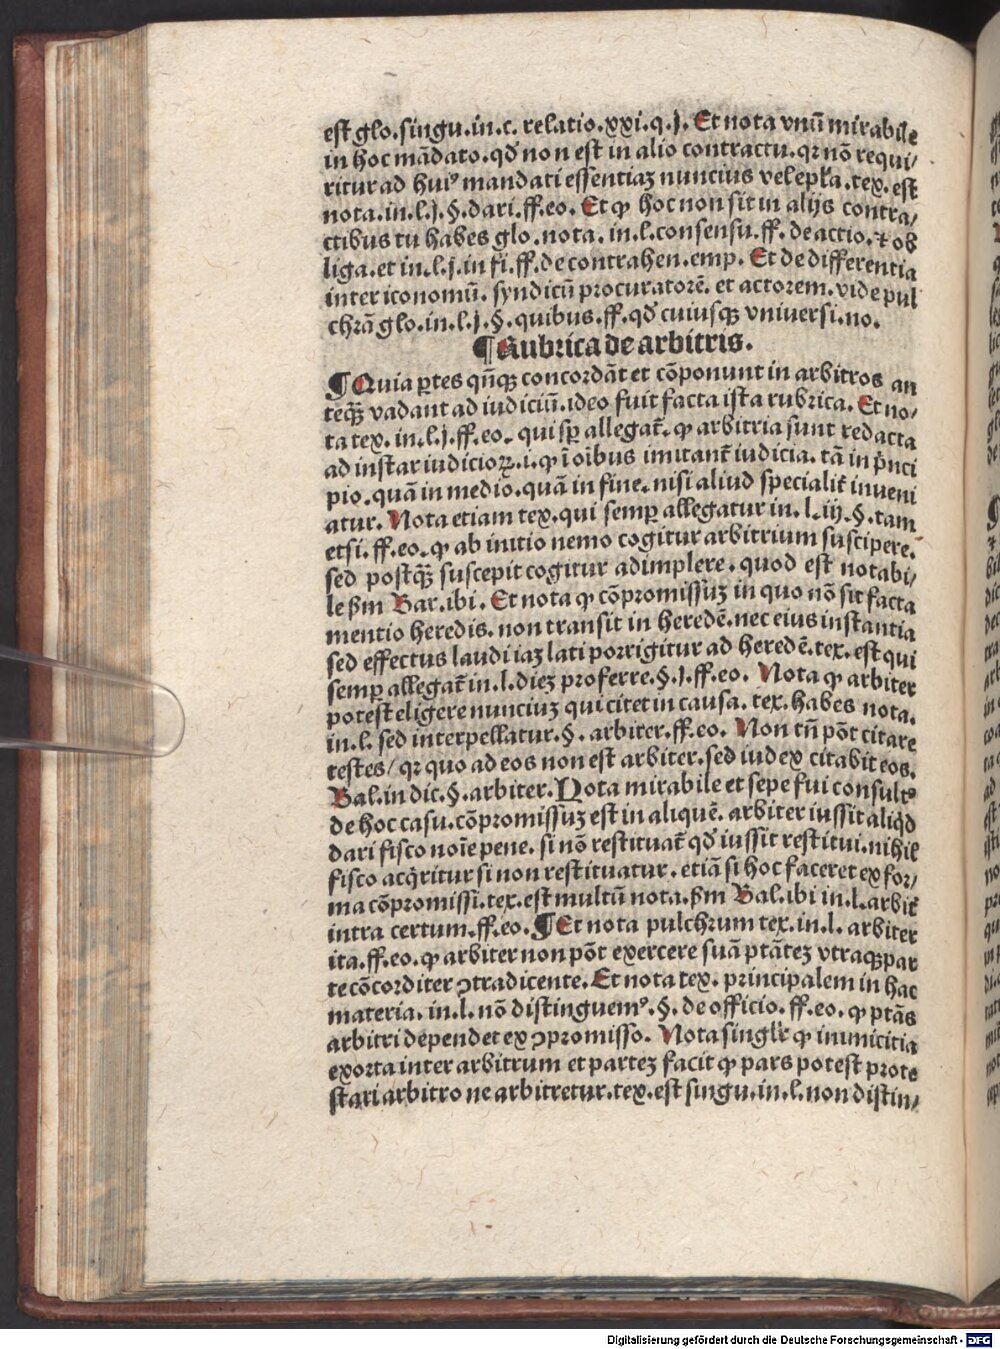 est glo.singu.in.c. relatio.xxi.q.j. Et nota vnū mirabile
in hoc mādato.qđ non est in alio contractu.qꝛ nō requi/
ritur ad huiꝰ mandati essentiaʒ nuncius vel epła.tex.est
nota.in.l.j.§.dari.ff.eo. Et ꝙ hoc non sit in alijs contra/
ctibus tu habes glo.nota. in.l.consensu.ff. de actio.⁊ ob
liga.et in.l.j.in fi.ff.de contrahen.emp. Et de differentia
inter iconomū. syndicū procuratorē. et actorem.vide pul
chrā glo.in.l.j.§.quibus.ff.qđ cuiusqꝫ vniuersi.no.
¶Rubrica de arbitris.
¶Quia ꝑtes qñqꝫ concordāt et cōponunt in arbitros an
teqꝫ̄ vadant ad iudiciū.ideo fuit facta ista rubrica. Et no/
ta tex. in.l.j.ff.eo. qui sꝑ allegat̄. ꝙ arbitria sunt redacta
ad instar iudicioꝝ.i.ꝙ ī oībus imitant̄ iudicia. tā in pͥnci
pio.quā in medio.quā in fine.nisi aliud specialit̄ inueni
atur. Nota etiam tex.qui semꝑ allegatur in.l.iij.§.tam
etsi.ff.eo.ꝙ ab initio nemo cogitur arbitrium suscipere.
sed postqꝫ̄ suscepit cogitur adimplere.quod est notabi/
le ẜm Bar.ibi. Et nota ꝙ cōpromissuʒ in quo nō sit facta
mentio heredis. non transit in heredē.nec eius instantia
sed effectus laudi iaʒ lati porrigitur ad heredē.tex.est qui
semꝑ allegat̄ in.l.dieʒ proferre.§.j.ff.eo. Nota ꝙ arbiter
potest eligere nunciuʒ qui citet in causa. tex.habes nota.
in.l. sed interpellatur.§. arbiter.ff.eo. Non tñ pōt citare
testes/ qꝛ quo ad eos non est arbiter.sed iudex citabit eos.
Bal.in dic.§.arbiter. Nota mirabile et sepe fui consultꝰ
de hoc casu.cōpromissuʒ est in aliquē. arbiter iussit aliqͥd
dari fisco noīe pene. si nō restituat̄ qđ iussit restitui.nihil
fisco acqͥritur si non restituatur.etiā si hoc faceret ex for/
ma cōpromissi.tex.est multū nota.ẜm Bal.ibi in.l.arbit̄
intra certum.ff.eo.¶Et nota pulchrum tex.in.l. arbiter
ita.ff.eo.ꝙ arbiter non pōt exercere suā ptāteʒ vtraqꝫ par
te cōcorditer ↄtradicente.Et nota tex. principalem in hac
materia. in.l.nō distinguemꝰ.§. de officio. ff.eo. ꝙ ptās
arbitri dependet ex ↄpromisso. Nota singlr̄ ꝙ inimicitia
exorta inter arbitrum et parteʒ facit ꝙ pars potest prote
stari arbitro ne arbitretur.tex.est singu.in.l.non distin/
Digitalisierung gefördert durch die Deutsche Forschungsgemeinschaft - DFG